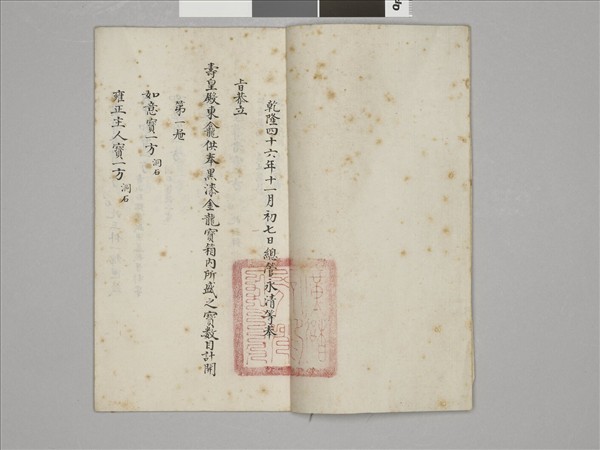 乾隆四十六年十一月初七日總管永清等奉
旨恭立
壽皇殿東龕供奉黑漆金龍寶箱內所盛之寶數目計開
第一層
如意寶一方 洞石
雍正主人寶一方 洞石